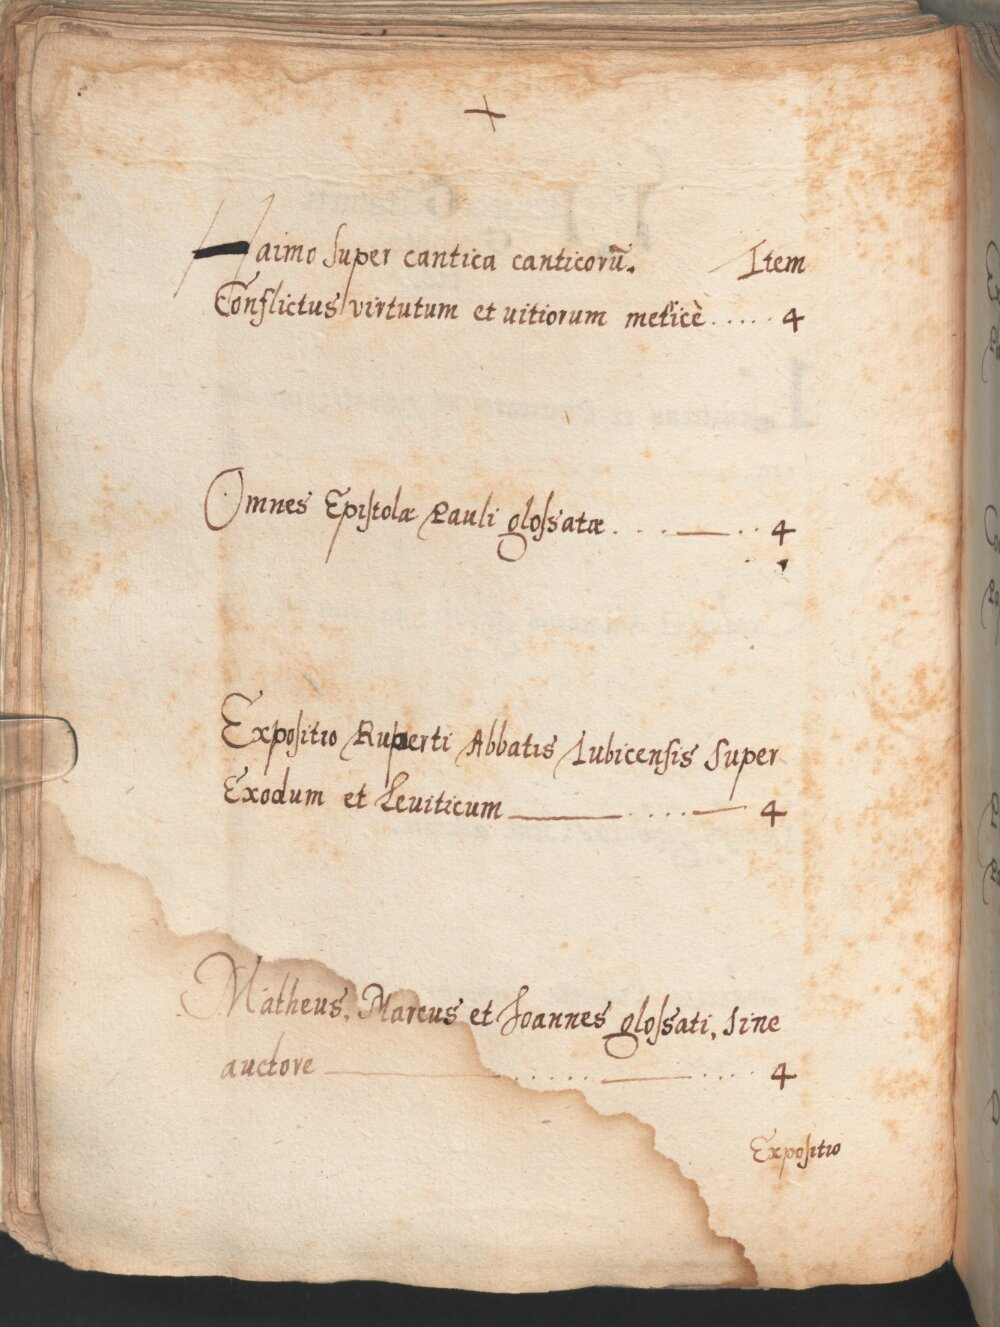 +
Haimo super cantica canticorū. Item
Conflictus virtutum et uitiorum meticè ..... 4
Omnes Epistolæ Pauli glossatæ . . . — . . 4
Expositio Ruperti Abbatis Tubicensis super
Exodum et Leviticum — .... — 4
Matheus, Marcus et Joannes glossati, sine
auctore — ..... — .... 4
Expositio